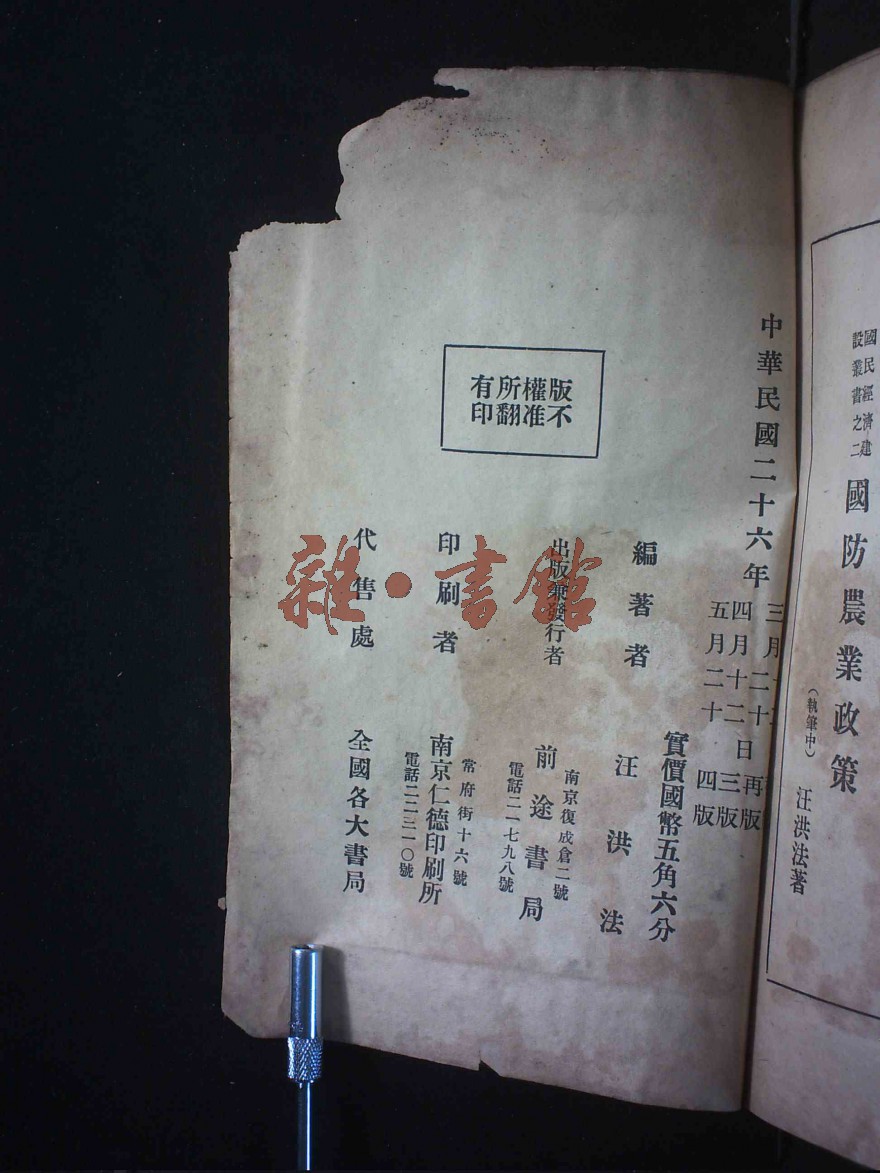 國民經濟建
設叢書之二
國防農業政策
（執筆中）
汪洪法著
中華民國二十六年
三月
二十 再版
四月十二日 三版
五月二十 四版
實價國幣五角六分
版權所有
不准翻印
編著者 汪洪法
出版兼發行者
南京復成倉二號
前途書局
電話二一七九八號
印刷者
常府街十六號
南京仁德印刷所
電話二二三一〇號
代售處 全國各大書局
雜·書館